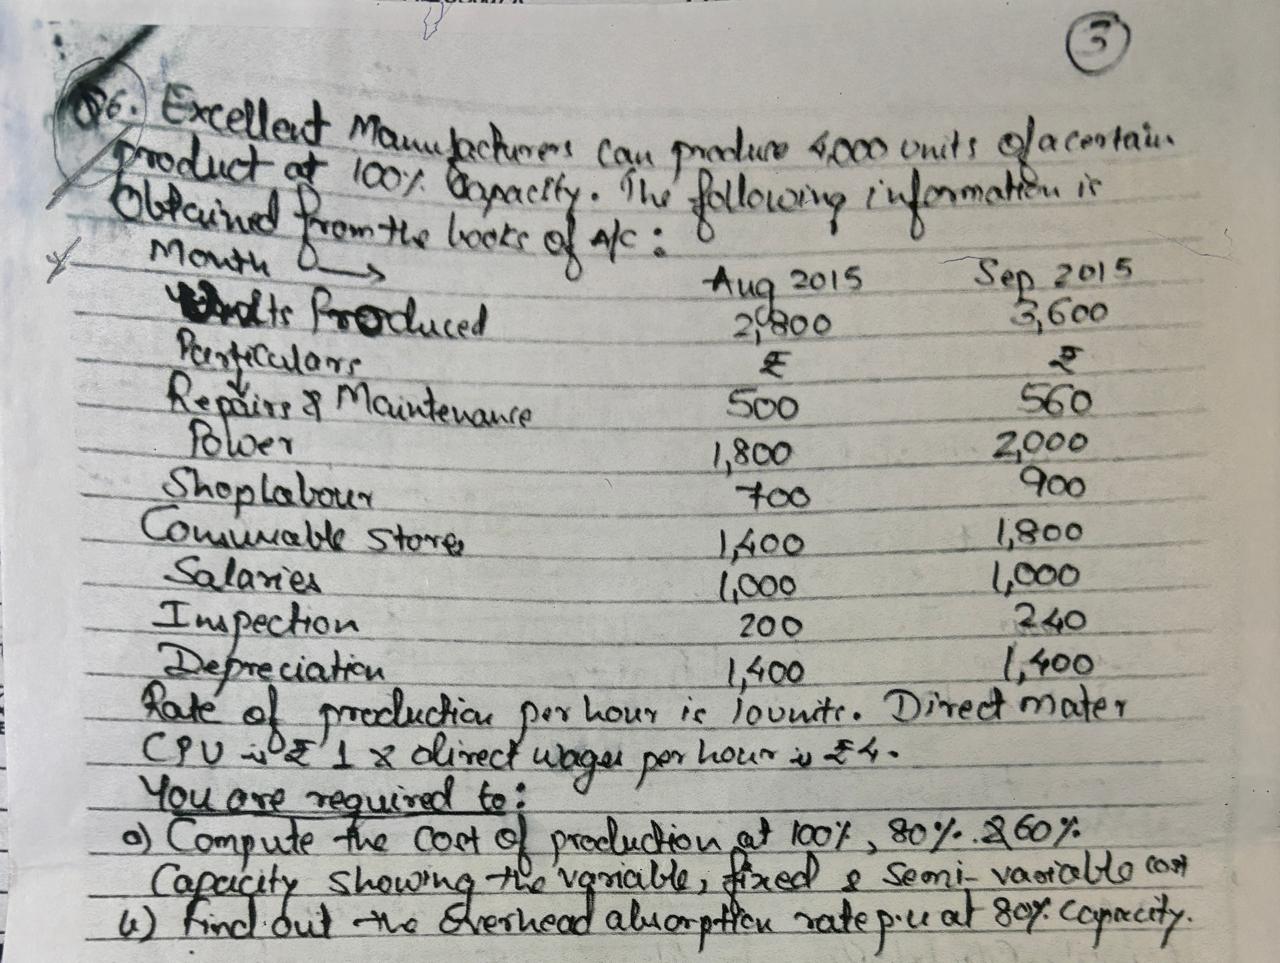 3
Q6. Excellent Manufacturers can produce 4,000 units of a certain
product at 100% Capacity. The following information is
Obtained from the books of A/C:
Month →
Aug 2015 Sep 2015
Units Produced 2,800 3,600
Particulars ₹ ₹
Repairs & Maintenance 500 560
Power 1,800 2,000
Shop labour 700 900
Consumable Stores 1,400 1,800
Salaries 1,000 1,000
Inspection 200 240
Depreciation 1,400 1,400
Rate of production per hour is 10 units. Direct mater
CPU is ₹ 1 & direct wages per hour is ₹4.
You are required to:
a) Compute the cost of production at 100%, 80% & 60%
Capacity showing the variable, fixed & Semi-variable cost
b) Find out the Overhead absorption rate p.u at 80% capacity.